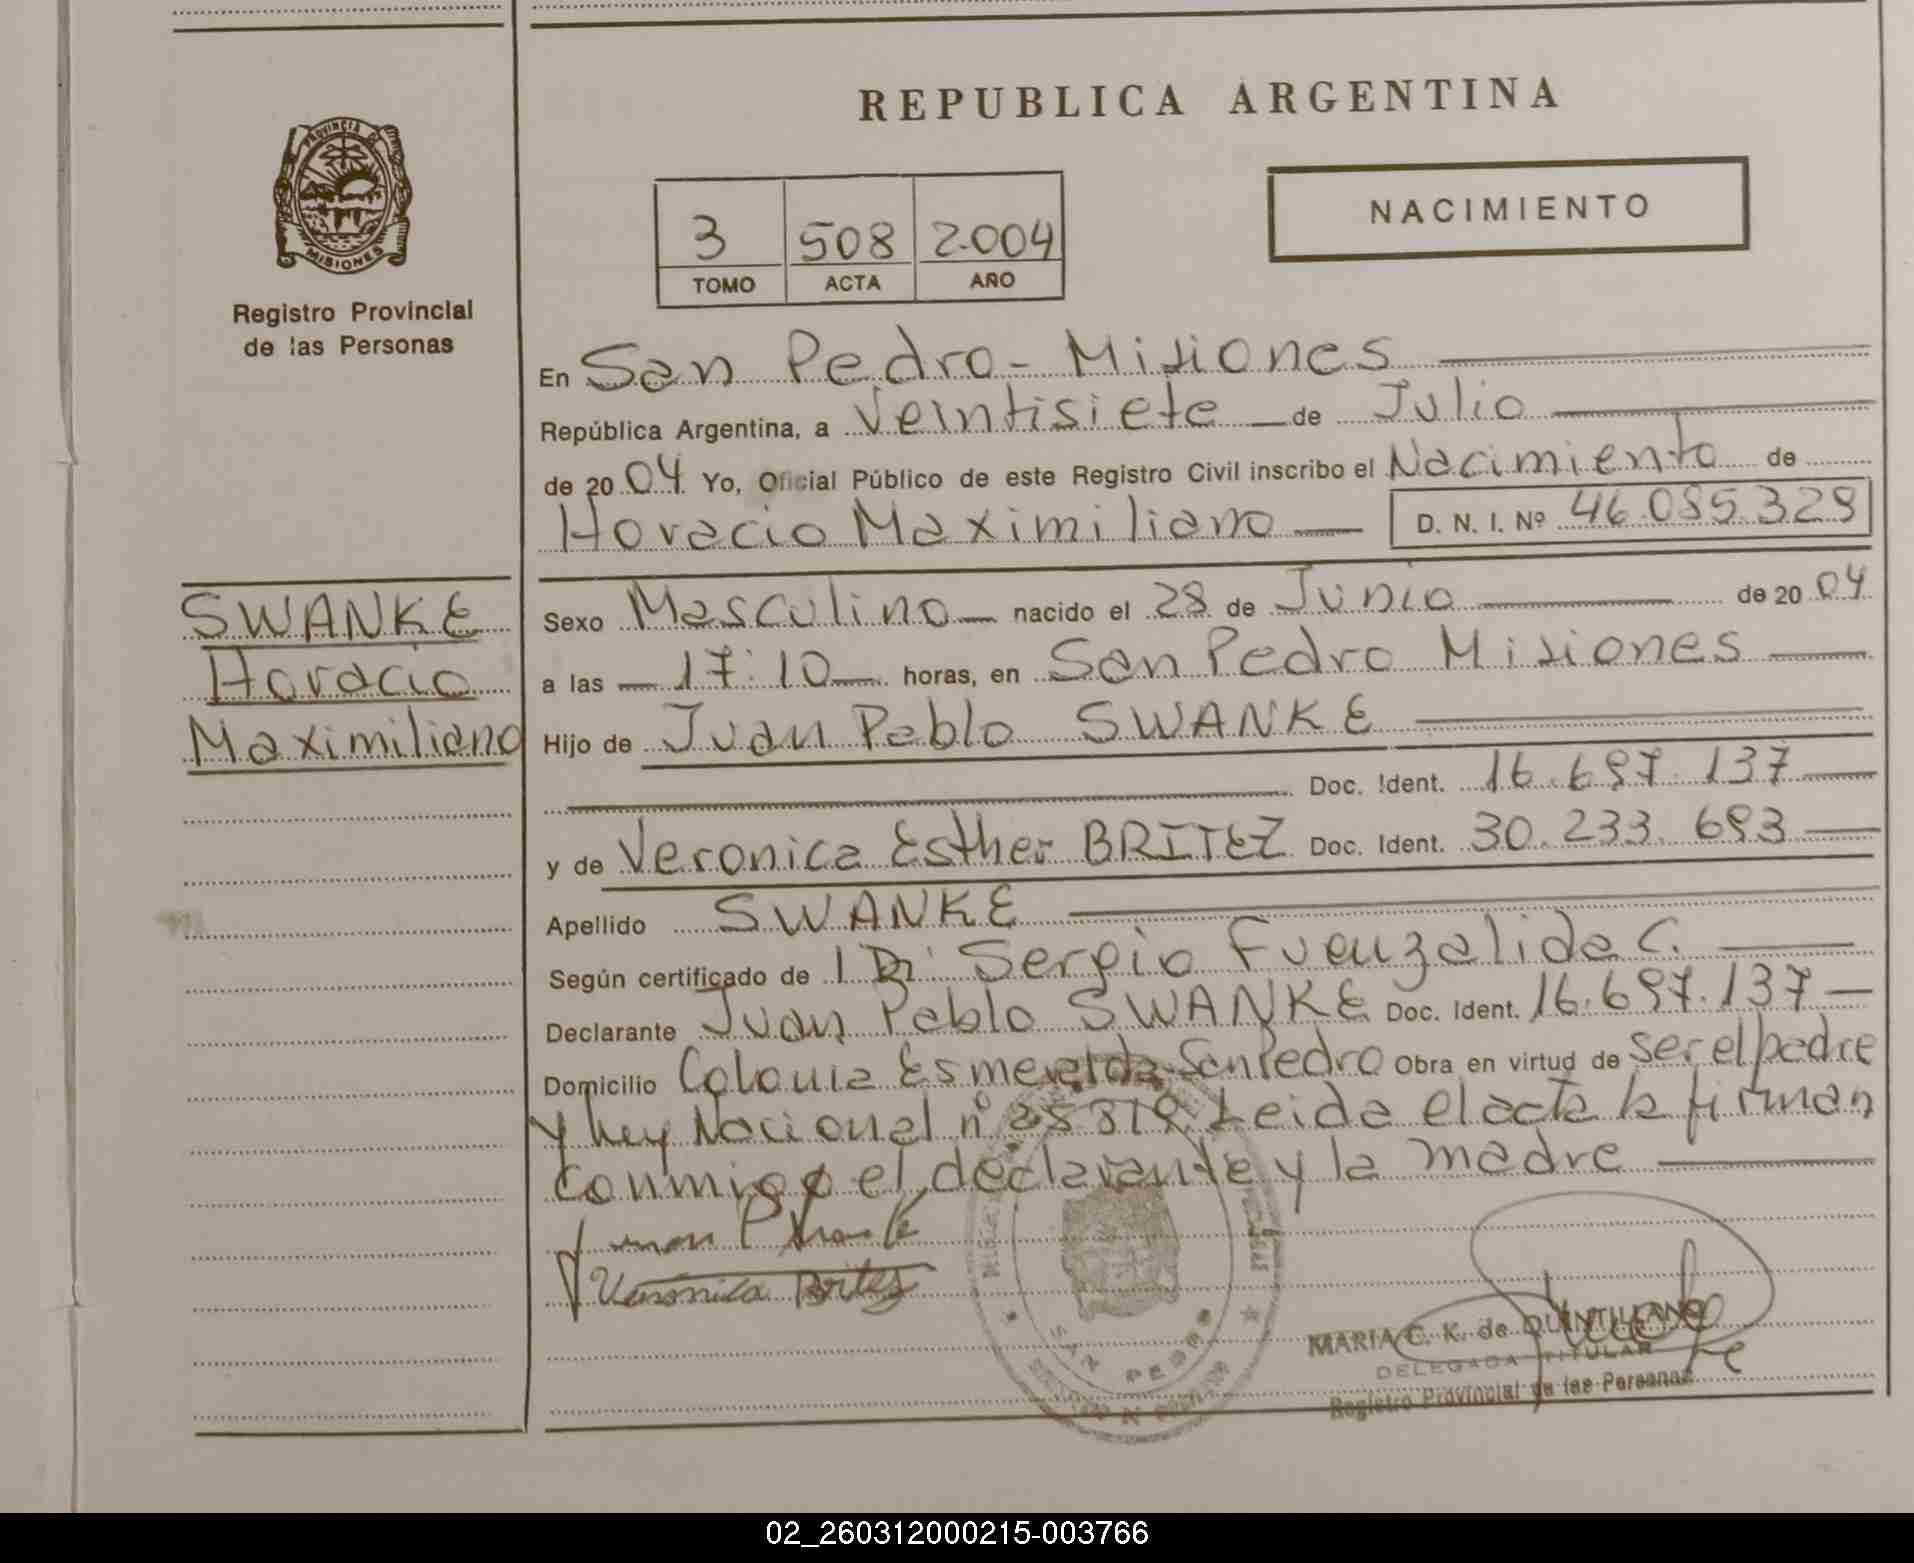 REPUBLICA ARGENTINA
PROVINCIA DE
MISIONES
Registro Provincial
de las Personas
3 508 2004
TOMO ACTA AÑO
NACIMIENTO
En San Pedro - Misiones
República Argentina, a Veintisiete de Julio
de 2004 Yo, Oficial Público de este Registro Civil inscribo el Nacimiento de
Horacio Maximiliano D. N. I. Nº 46.085.329
SWANKE
Horacio
Maximiliano
Sexo Masculino nacido el 28 de Junio de 2004
a las 17:10 horas, en San Pedro Misiones
Hijo de Juan Pablo SWANKE
Doc. Ident. 16.697.137
y de Veronica Esther BRITEZ Doc. Ident. 30.233.693
Apellido SWANKE
Según certificado de Dr Sergio Fuenzalida C.
Declarante Juan Pablo SWANKE Doc. Ident. 16.697.137
Domicilio Colonia Esmeralda San Pedro Obra en virtud de ser el padre
y Ley Nacional nº Leida el acta la firman
conmigo el declarante y la madre
Veronica Britez
SAN PEDRO
MARIA C. K. de QUINTILLANO
DELEGADA TITULAR
Registro Provincial de las Personas
02_260312000215-003766